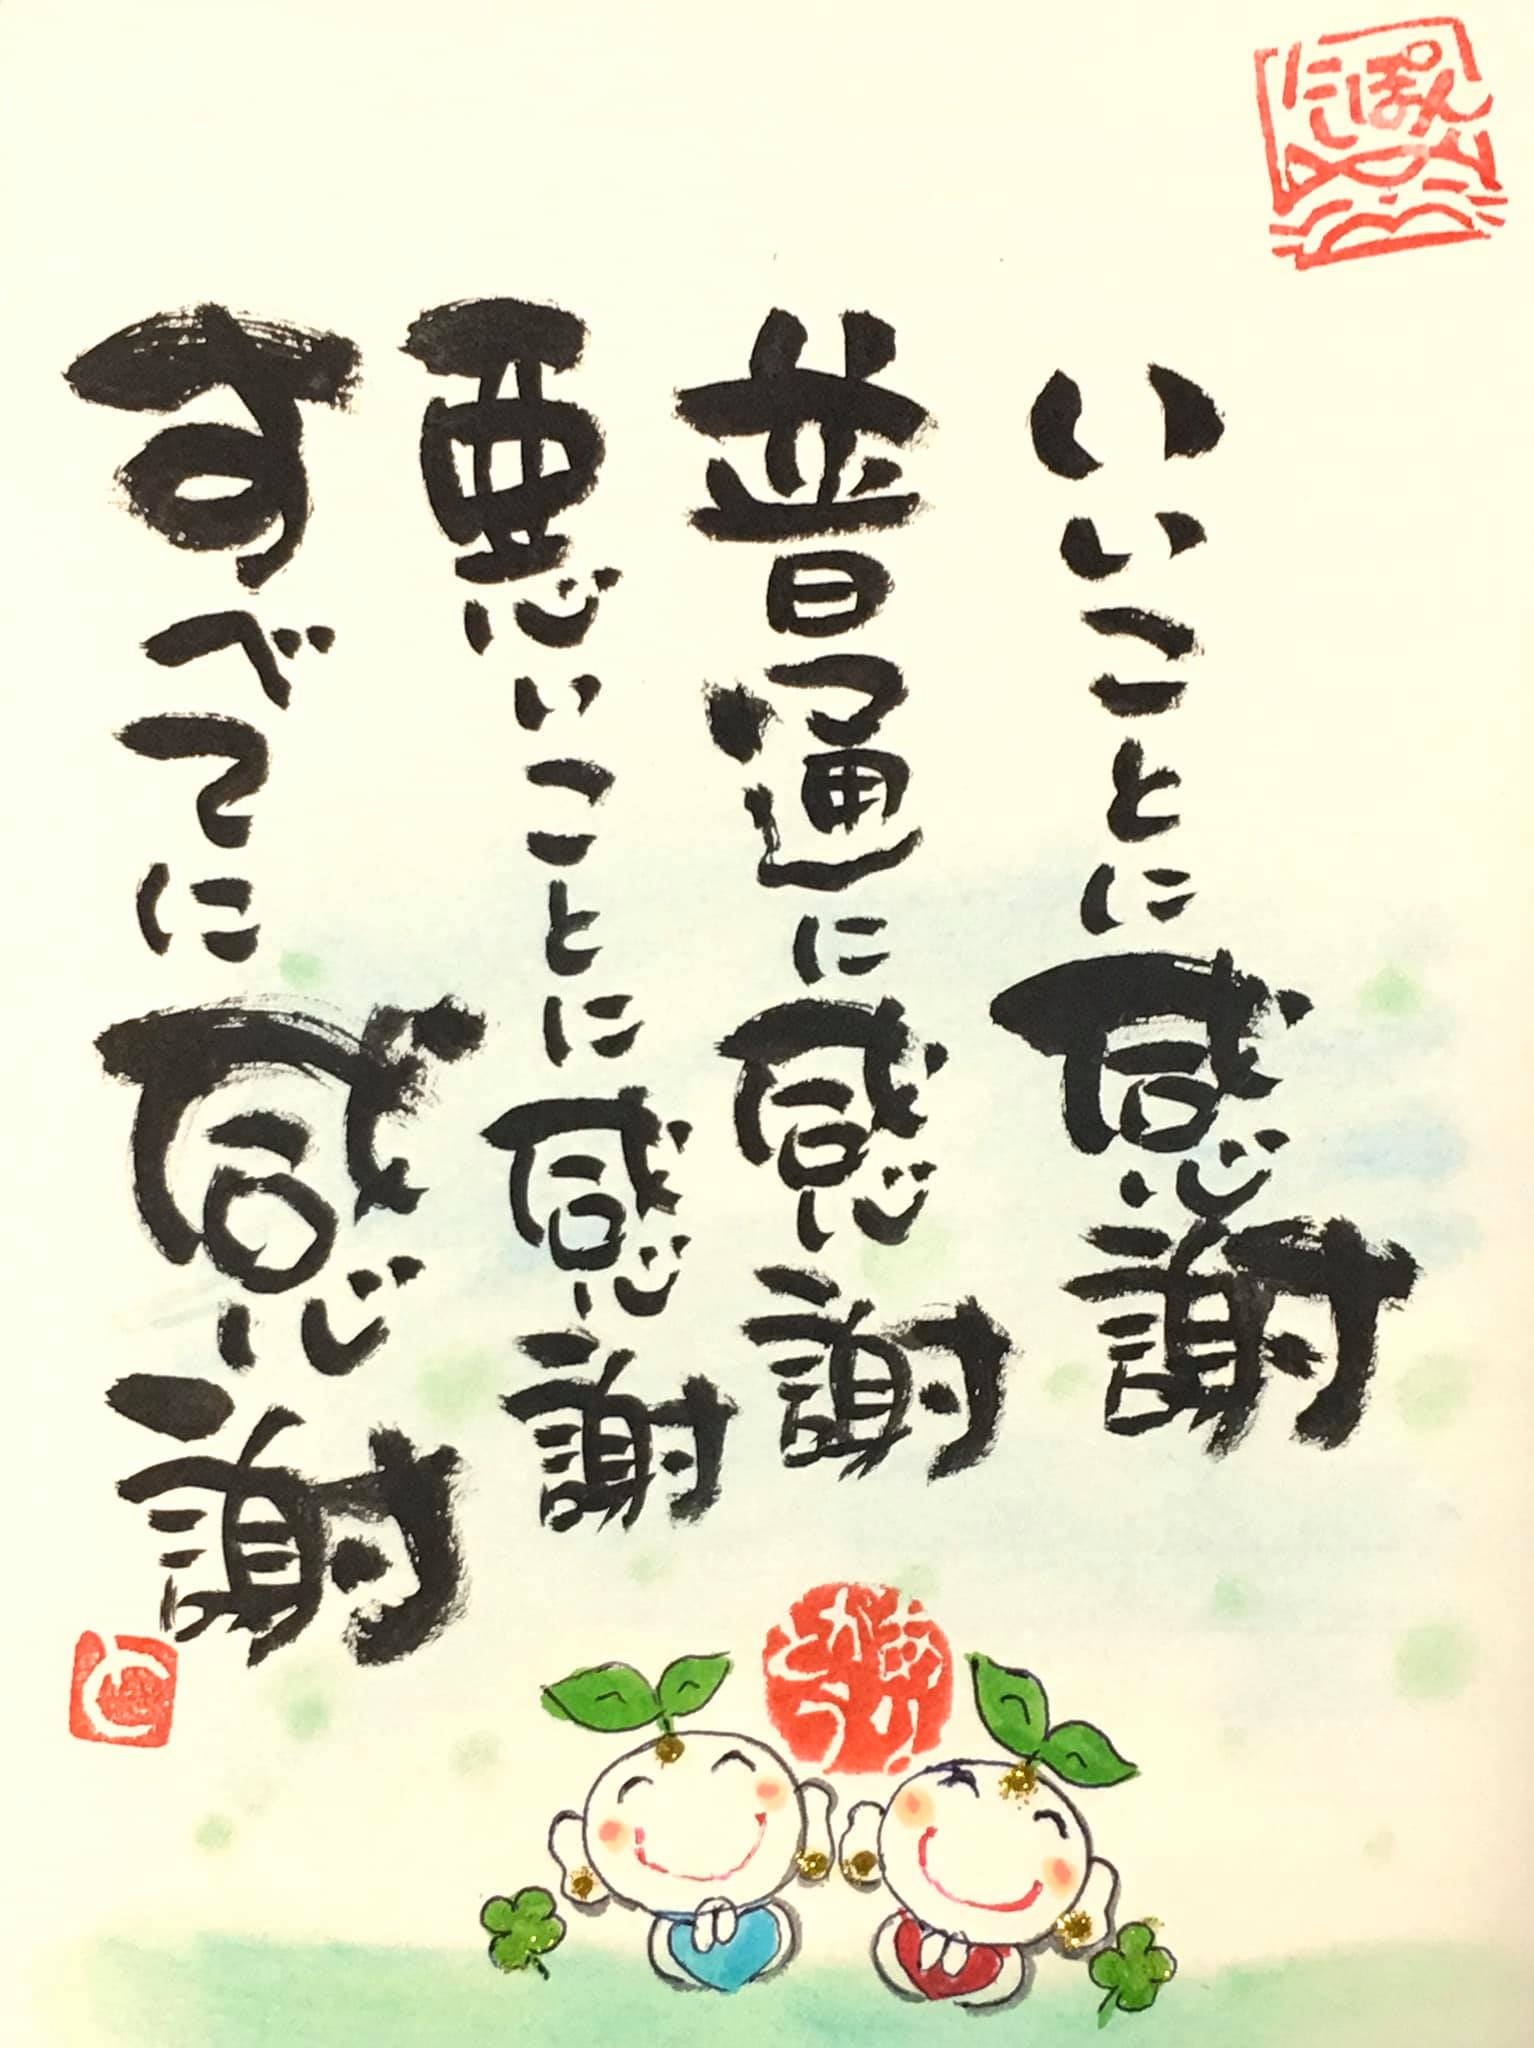 にしぽん
いいことに感謝
普通に感謝
悪いことに感謝
すべてに感謝
ありがとう